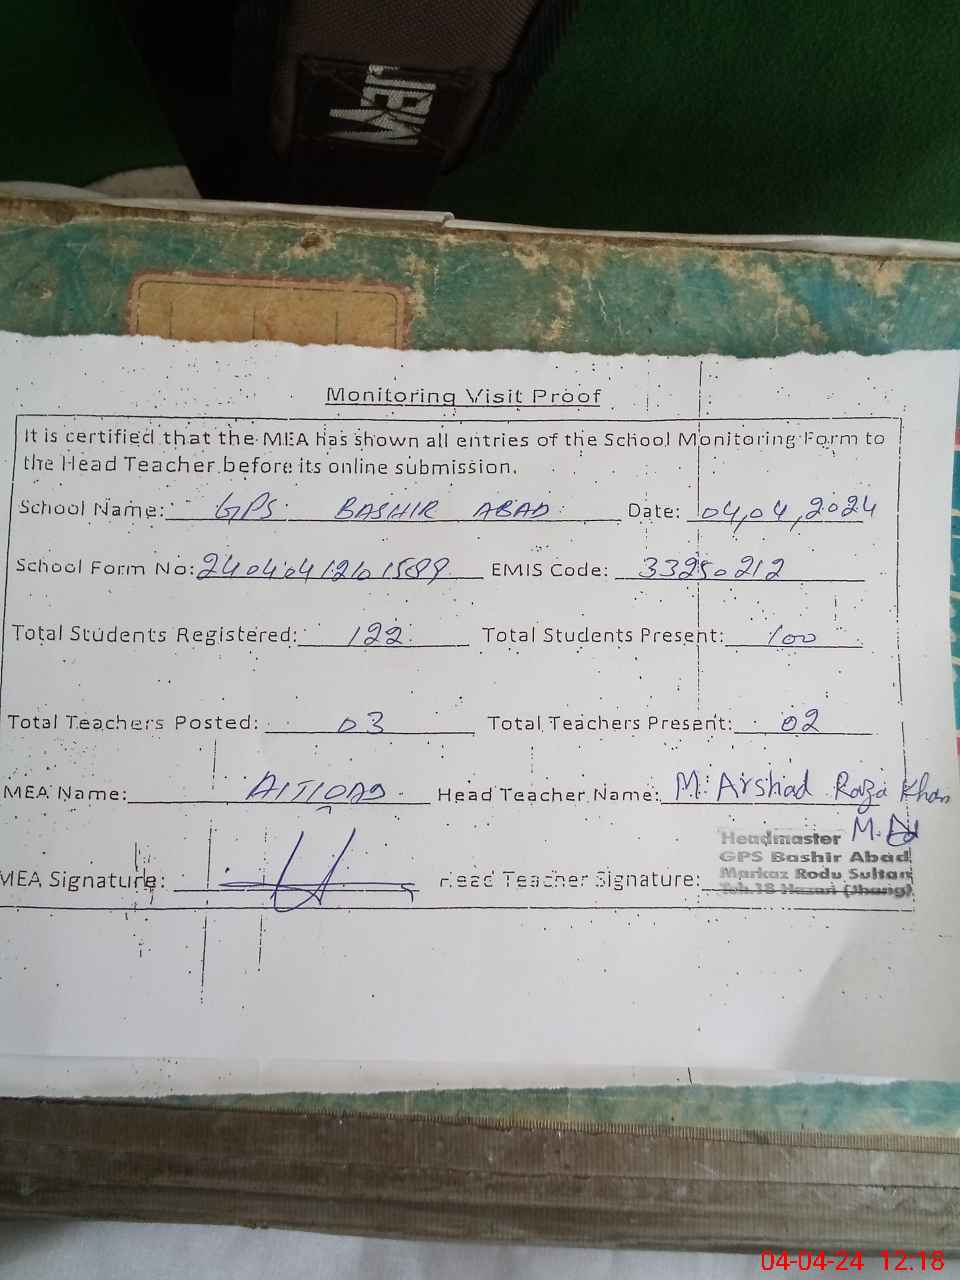 Monitoring Visit Proof
It is certified that the MEA has shown all entries of the School Monitoring Form to
the Head Teacher before its online submission.
School Name: GPS BASHIR ABAD Date: 04,04,2024
School Form No: EMIS Code: 33250212
Total Students Registered: 122 Total Students Present: 100
Total Teachers Posted: 03 Total Teachers Present: 02
MEA Name: Head Teacher Name: M. Arshad Raza Khan
Headmaster
GPS Bashir Abad
MEA Signature: Head Teacher Signature: Markaz Rodu Sultan
Teh.18 Hazari (Jhang)
04-04-24 12.18